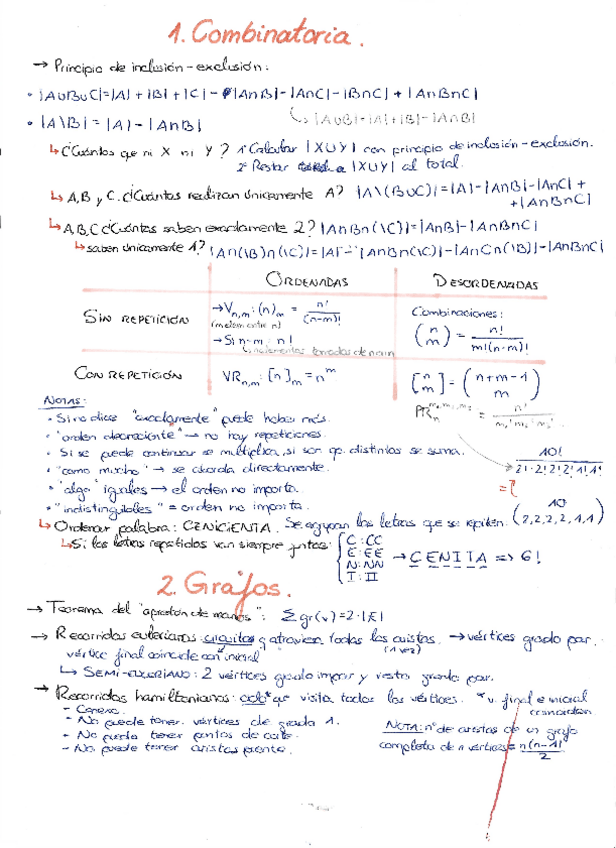 1. Combinatoria.
→ Principio de inclusión-exclusión:
• |A∪B∪C|=|A|+|B|+|C|-|A∩B|-|A∩C|-|B∩C|+|A∩B∩C|
↳ |A∪B|=|A|+|B|-|A∩B|
• |A\B| = |A|-|A∩B|
↳ ¿Cuántos que ni X ni Y? 1º Calcular |X∪Y| con principio de inclusión-exclusión.
2º Restar |X∪Y| al total.
↳ A,B y C. ¿Cuántos realizan únicamente A? |A\(B∪C)|=|A|-|A∩B|-|A∩C|+
+|A∩B∩C|
↳ A,B,C ¿Cuántos saben exactamente 2? |A∩B∩(\C)|=|A∩B|-|A∩B∩C|
↳ saben únicamente 1? |A∩(\B)∩(\C)|=|A|-|A∩B∩(\C)|-|A∩C∩(\B)|-|A∩B∩C|
ORDENADAS DESORDENADAS
SIN REPETICIÓN
→ V_{n,m}: (n)_m = n!/(n-m)!
(m elem entre n)
→ Si n=m, n!
n elementos tomados de n en n
Combinaciones:
(n m) = n!/m!(n-m)!
CON REPETICIÓN VR_{n,m}: [n]_m = n^m [n m] = (n+m-1 m)
NOTAS:
• Si no dice "exactamente" puede haber más.
• "orden decreciente" → no hay repeticiones.
• Si se puede continuar se multiplica, si son op. distintas se suma.
10!/2!·2!·2!·2!·1!·1!
• "como mucho" → se aborda directamente.
• "algo" iguales → el orden no importa.
• "indistinguibles" = orden no importa.
(10 2,2,2,2,1,1)
↳ Ordenar palabra: CENICIENTA. Se agrupan las letras que se repiten.
↳ Si las letras repetidas van siempre juntas:
C: CC
E: EE
N: NN
I: II
→ C E N I T A => 6!
2. Grafos.
→ Teorema del "apretón de manos": Σgr(v)=2·|E|
→ Recorridos eulerianos: circuitos q atraviesa todas las aristas. → vértices grado par.
(1 vez)
vértice final coincide con inicial
↳ SEMI-EULERIANO: 2 vértices grado impar y resto grado par.
→ Recorridos hamiltonianos: ciclo* que visita todos los vértices. *v. final e inicial
coinciden
- Conexo.
- No puede tener vértices de grado 1.
- No puede tener puntos de corte.
- No puede tener aristas puente.
NOTA: nº de aristas de un grafo
completo de n vértices = n(n-1)/2